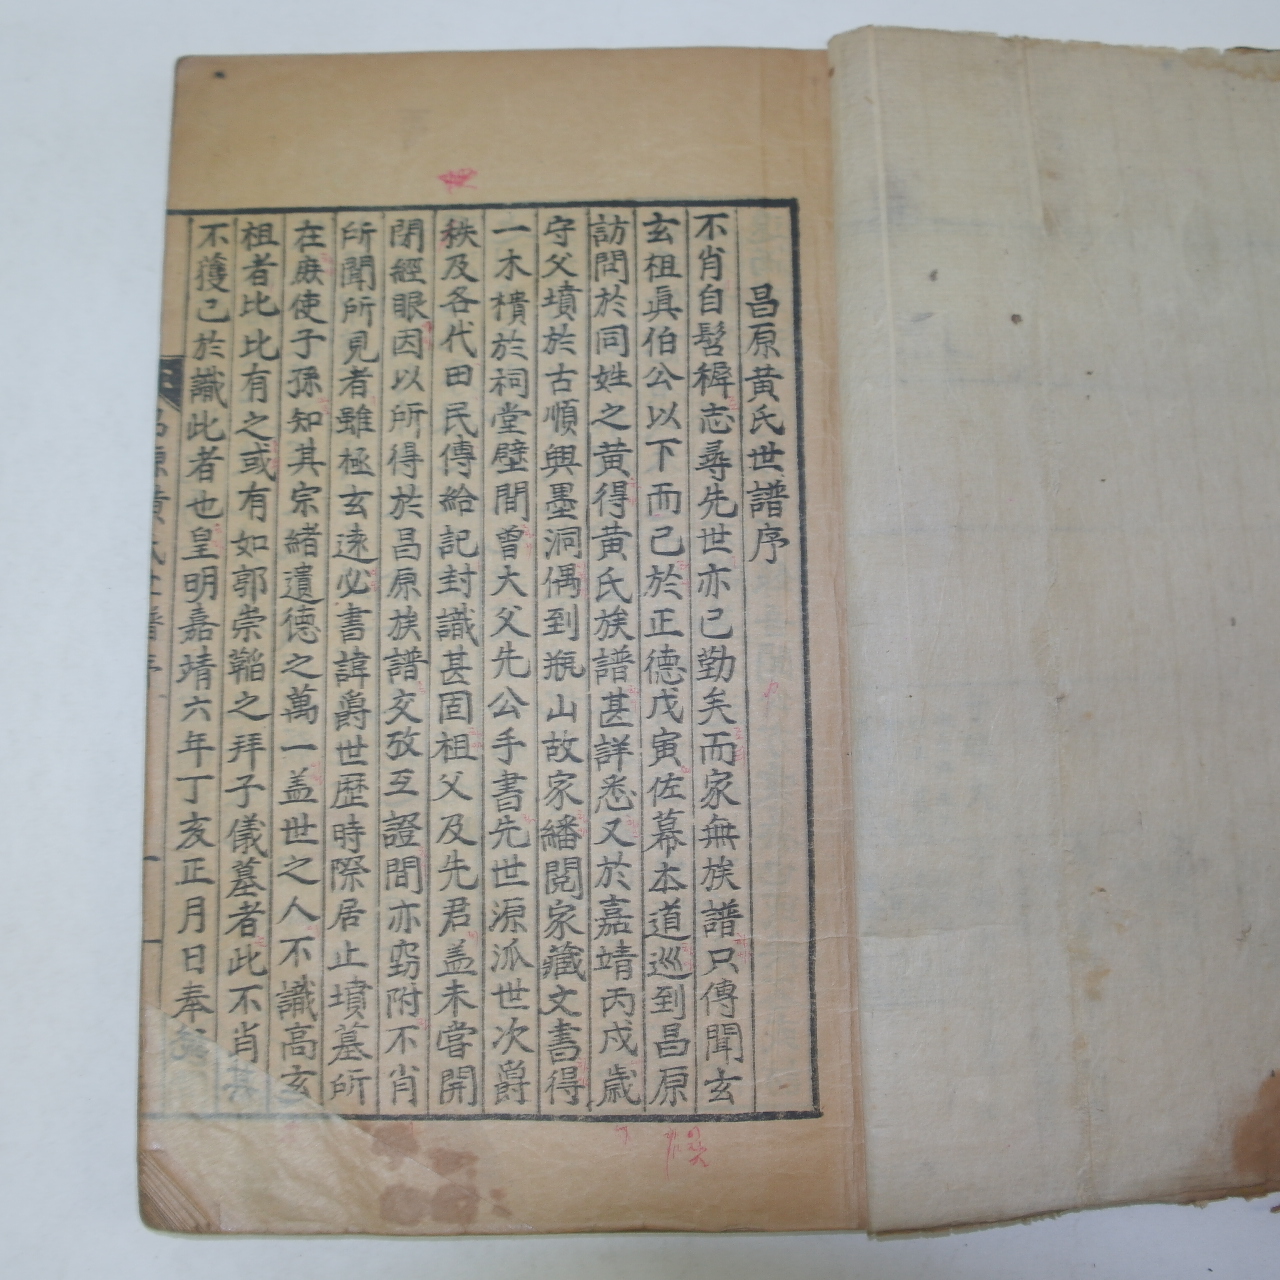 昌原黃氏世譜序
不肖自髫稺志尋先世亦已勤矣而家無族譜只傳聞玄
玄祖眞伯公以下而已於正德戊寅佐幕本道巡到昌原
訪問於同姓之黃得黃氏族譜甚詳悉又於嘉靖丙戌歲
守父墳於古順興墨洞偶到瓶山故家繙閱家藏文書得
一木樻於祠堂壁間曾大父先公手書先世源派世次爵
秩及各代田民傳給記封識甚固祖父及先君盖未嘗開
閉經眼因以所得於昌原族譜交攷互證間亦竊附不肖
所聞所見者雖極玄遠必書諱爵世歷時際居止墳墓所
在庶使子孫知其宗緖遺德之萬一盖世之人不識高玄
祖者比比有之或有如郭崇韜之拜子儀墓者此不肖其
不獲已於識此者也皇明嘉靖六年丁亥正月日奉
昌原黃氏世譜序
一